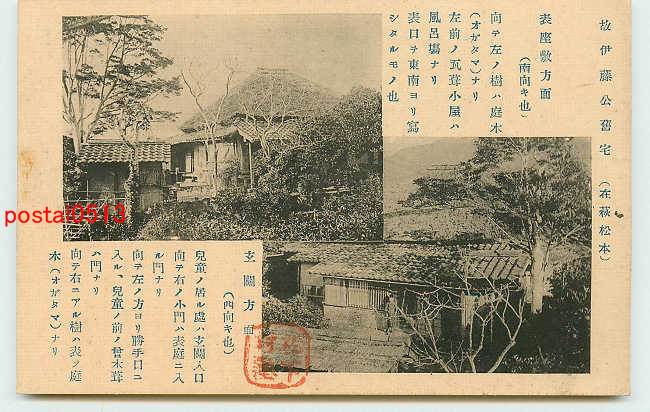 故伊藤公舊宅（在萩松本）
表座敷方面
（南向キ也）
向テ左ノ樹ハ庭木
（オガタマ）ナリ
左前ノ瓦葺小屋ハ
風呂塲ナリ
表口ヲ東南ヨリ寫
シタルモノ也
玄關方面
（西向キ也）
兒童ノ居ル處ハ玄關入口
向テ右ノ小門ハ表庭ニ入
ル門ナリ
向テ左ノ方ヨリ勝手口ニ
入ル、兒童ノ前ノ
ハ門ナリ
向テ右ニアル樹ハ表ノ庭
木（オガタマ）ナリ
postal0513